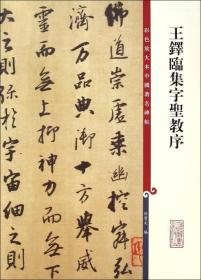 王鐸臨集字聖教序
彩色放大本中國著名碑帖
孫寶文 編
佛道崇虛乘幽控寂弘
濟萬品典御十方舉威
而無上抑神力而無下
大之則彌於宇宙細之則